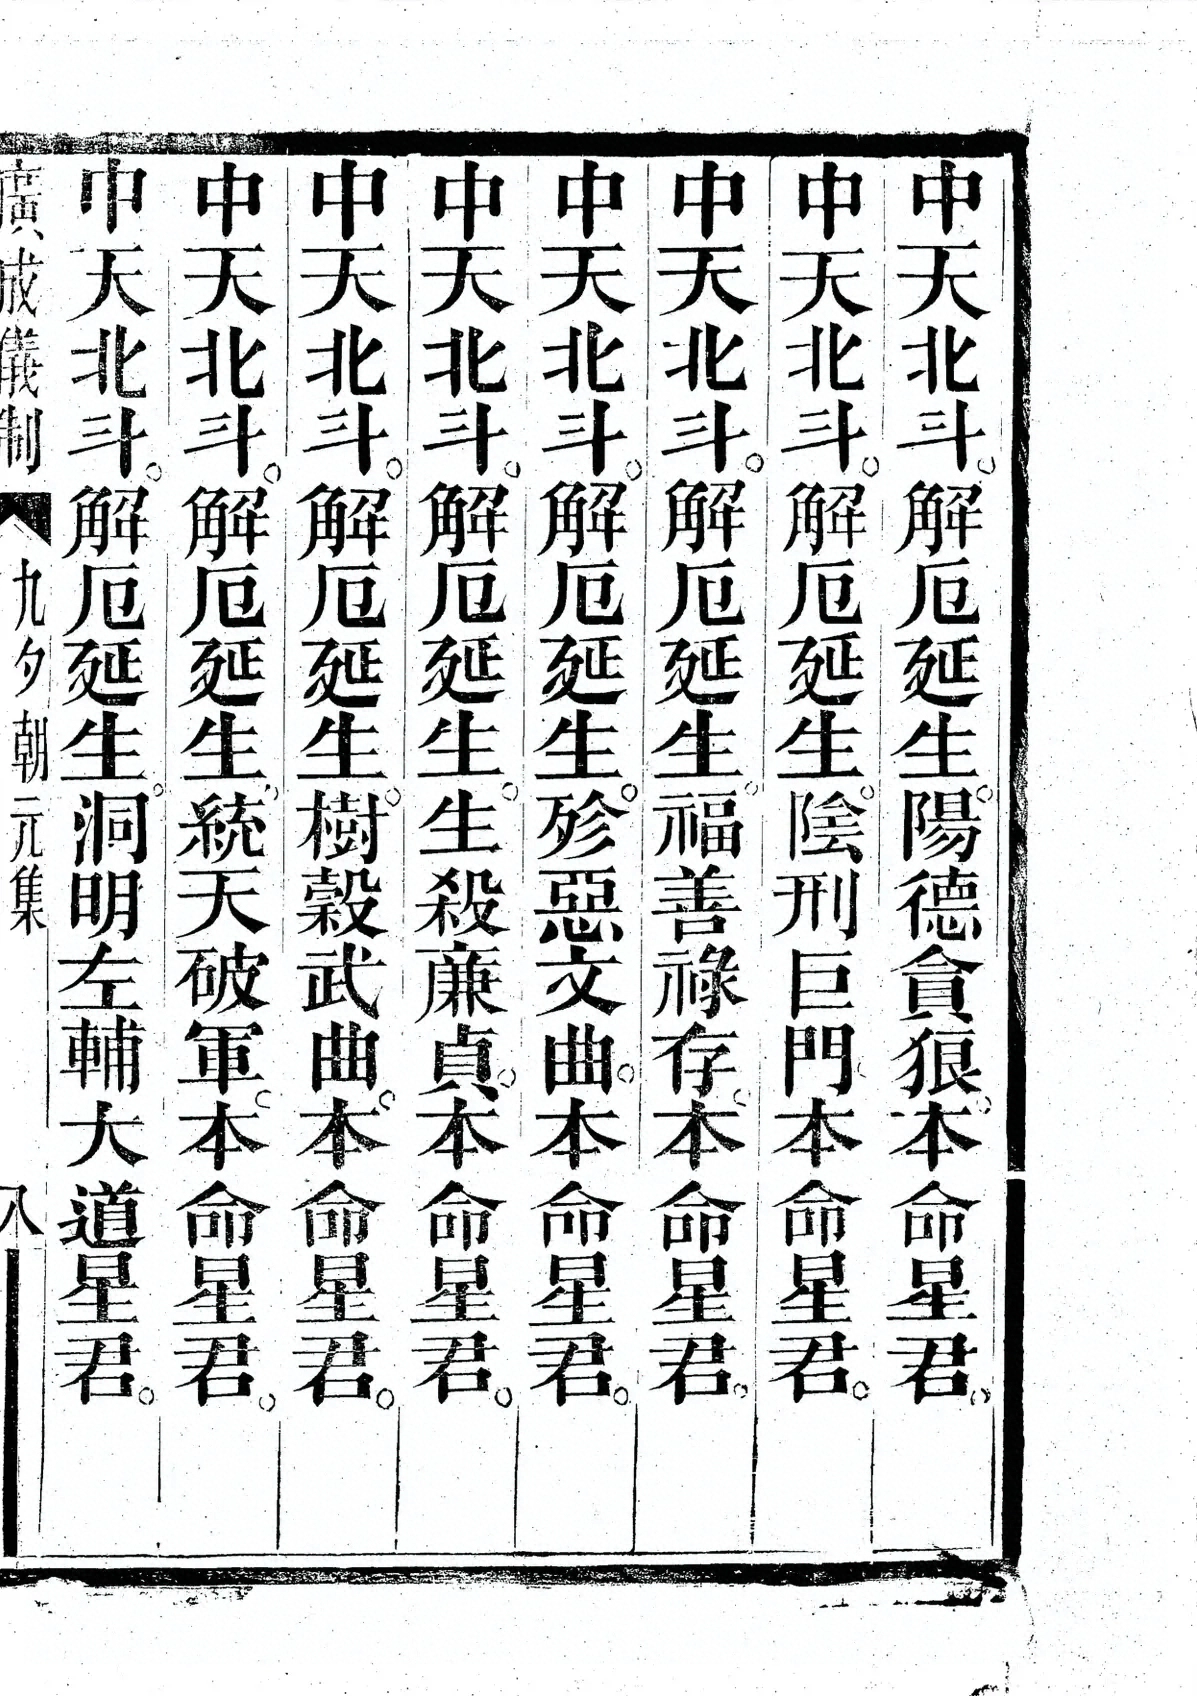 中天北斗。解厄延生。陽德貪狼。本命星君。
中天北斗。解厄延生。陰刑巨門。本命星君。
中天北斗。解厄延生。福善祿存。本命星君。
中天北斗。解厄延生。殄惡文曲。本命星君。
中天北斗。解厄延生。生殺廉貞。本命星君。
中天北斗。解厄延生。樹榖武曲。本命星君。
中天北斗。解厄延生。統天破軍。本命星君。
中天北斗。解厄延生。洞明左輔大道星君。
廣成儀制 九夕朝元集 八